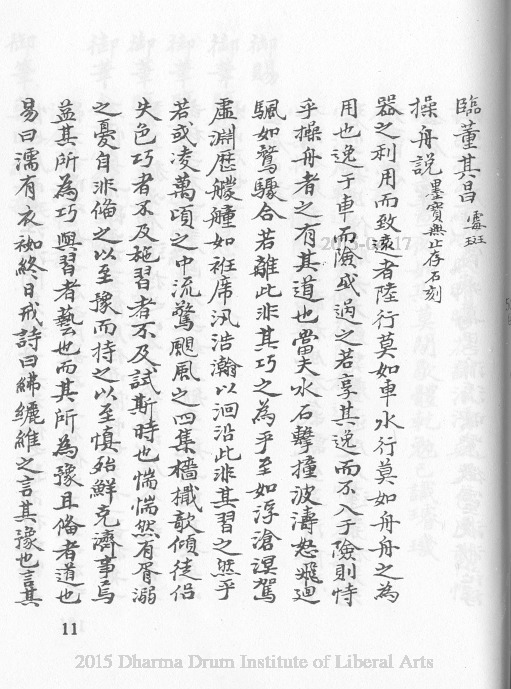 臨董其昌
操舟說 墨寶無止存石刻
器之利用而致遠者陸行莫如車水行莫如舟舟之為
用也逸于車而險或過之若享其逸而不入于險則恃
乎操舟者之有其道也當夫水石擊撞波濤怒飛迴
颿如鶩驟合若離此非其巧之為乎至如浮滄溟駕
虛淵歷艨艟如袵席汎浩瀚以洄沿此非其習之然乎
若或凌萬頃之中流驚颶風之四集檣檝欹傾徒侶
失色巧者不及施習者不及試斯時也惴惴然有胥溺
之憂自非俻之以至豫而持之以至慎殆鮮克濟事焉
益其所為巧與習者藝也而其所為豫且俻者道也
易曰濡有衣袽終日戒詩曰紼纚維之言其豫也言其
11
2015 Dharma Drum Institute of Liberal Arts